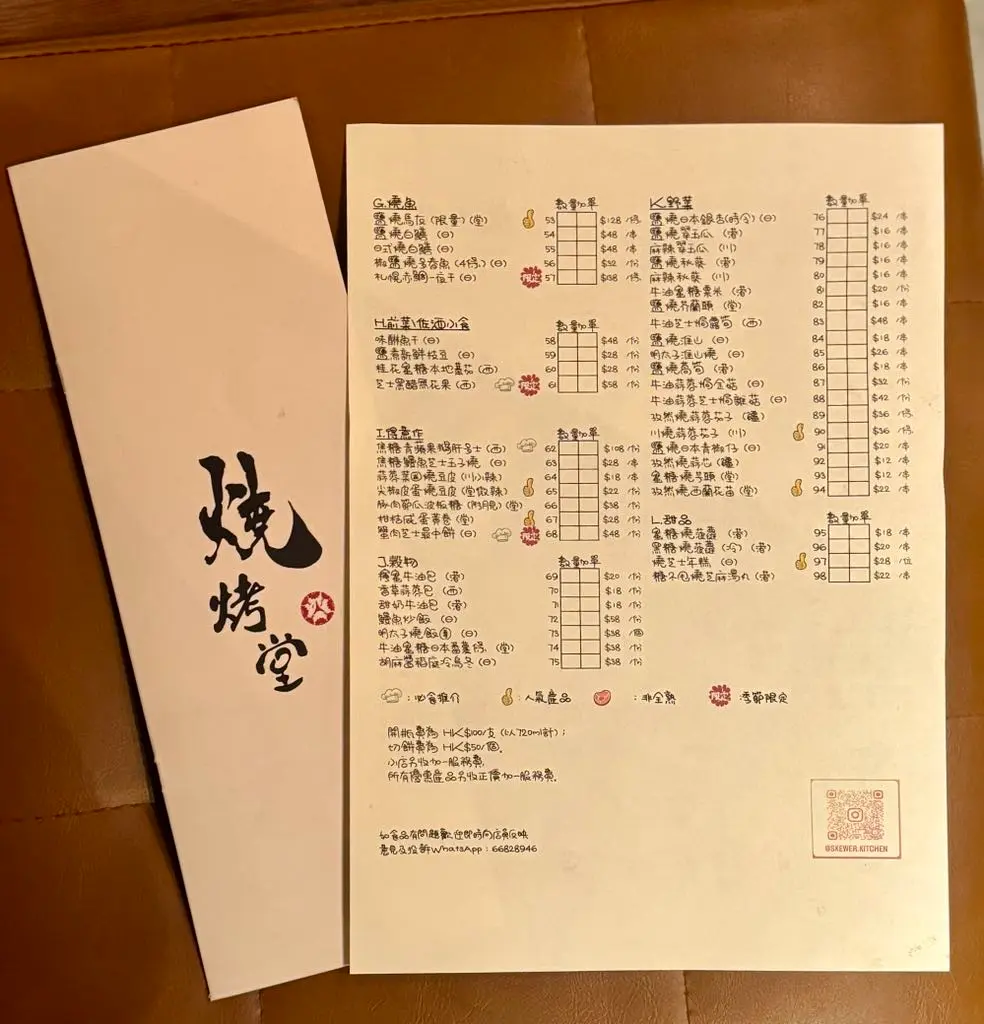 燒
烤
堂
G.燒魚 數量加單
鹽燒馬友 (限量) (堂) 53 $128 /條
鹽燒白鱔 (日) 54 $48 /串
日式燒白鱔 (日) 55 $48 /串
椒鹽燒多春魚 (4條) (日) 56 $32 /份
札幌赤鯛一夜干 (日) 限定 57 $138 /條
H.前菜\佐酒小食 數量加單
味醂魚干 (日) 58 $48 /份
鹽煮新鮮枝豆 (日) 59 $28 /份
桂花蜜糖本地番茄 (西) 60 $28 /份
芝士黑醋無花果 (西) 限定 61 $58 /份
I.得意作 數量加單
焦糖青蘋果鵝肝多士 (西) 62 $108 /份
焦糖鰻魚芝士玉子燒 (日) 63 $28 /串
蒜蓉菜圃燒豆皮 (川)小辣 64 $18 /串
尖椒皮蛋燒豆皮 (堂微辣) 65 $22 /份
豚肉節瓜波板糖 (附月見) (堂) 66 $38 /份
柑桔咸蛋黃卷 (堂) 67 $28 /份
蟹肉芝士最中餅 (日) 限定 68 $48 /份
J.穀物 數量加單
楓蜜牛油包 (港) 69 $20 /份
香草蒜蓉包 (西) 70 $18 /份
甜奶牛油包 (港) 71 $18 /份
鰻魚炒飯 (日) 72 $58 /份
明太子燒飯團 (日) 73 $38 /個
牛油蜜糖日本番薯條 (堂) 74 $38 /份
胡麻醬稻庭冷烏冬 (日) 75 $38 /份
K.野菜 數量加單
鹽燒日本銀杏(時令) (日) 76 $24 /串
鹽燒翠玉瓜 (港) 77 $16 /串
麻辣翠玉瓜 (川) 78 $16 /串
鹽燒秋葵 (港) 79 $16 /串
麻辣秋葵 (川) 80 $16 /串
牛油蜜糖粟米 (港) 81 $20 /份
鹽燒芥蘭頭 (堂) 82 $16 /串
牛油芝士焗露筍 (西) 83 $48 /串
鹽燒淮山 (日) 84 $18 /串
明太子淮山燒 (日) 85 $26 /串
鹽燒萵筍 (港) 86 $18 /串
牛油蒜蓉焗金菇 (日) 87 $32 /份
牛油蒜蓉芝士焗雜菇 (日) 88 $42 /份
孜然燒蒜蓉茄子 (疆) 89 $36 /條
川燒蒜蓉茄子 (川) 90 $36 /條
鹽燒日本青椒仔 (日) 91 $20 /串
孜然燒蒜芯 (疆) 92 $12 /串
蜜糖燒芋頭 (堂) 93 $12 /串
孜然燒西蘭花苗 (堂) 94 $22 /串
L.甜品 數量加單
蜜糖燒菠蘿 (港) 95 $18 /串
黑糖燒菠蘿 (冷) (港) 96 $20 /串
燒芝士年糕 (日) 97 $28 /位
糖不甩燒芝麻湯丸 (港) 98 $22 /串
:必食推介 :人氣產品 :非全熟 限定 :季節限定
開瓶費為 HK$100/支 (以720ml計) ;
切餅費為 HK$50/個.
小店另收加一服務費
所有優惠產品另收正價加一服務費.
如食品有問題歡迎即時向店員反映
意見及投訴WhatsApp : 66828946
@SKEWER.KITCHEN